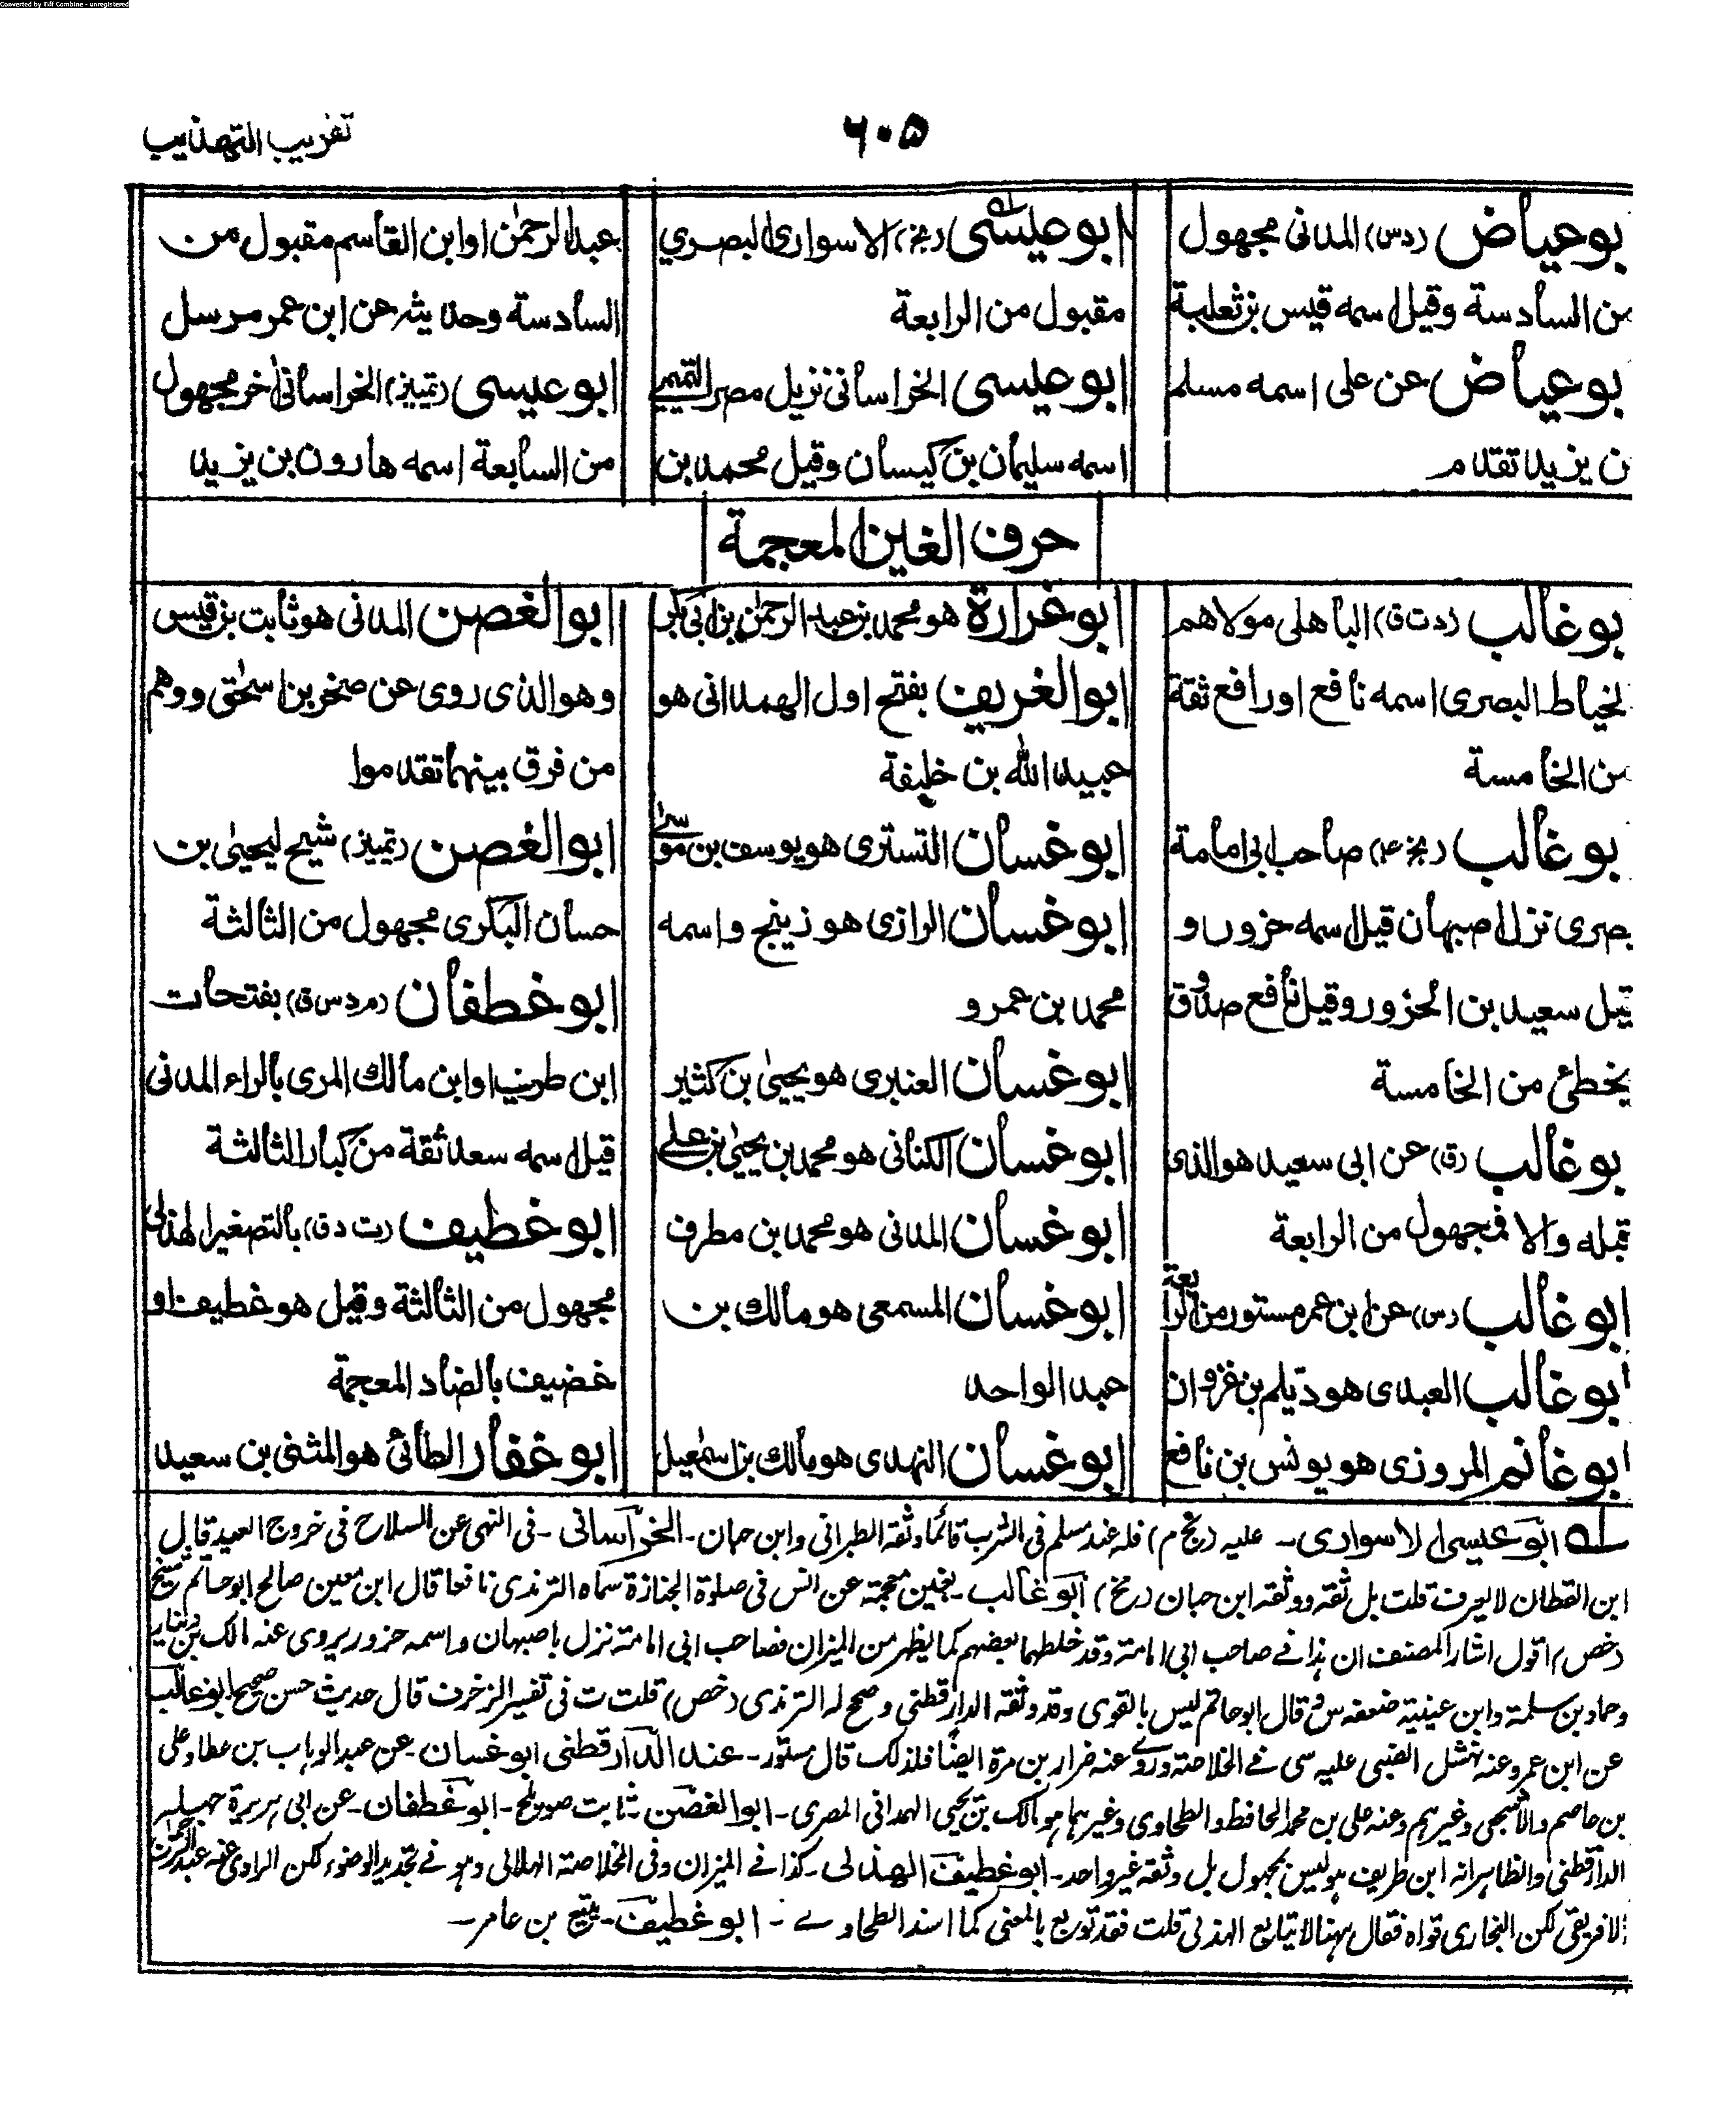 Converted by Tiff Combine - unregistered
٦٠٥
تقريب التهذيب
بوعياض (دس) المدنى مجهول
من السادسة وقيل اسمه قيس بن ثعلبة
بوعياض عن على اسمه مسلم
ن يزيد تقدم
ابوعيسى (بخ) الاسوارى البصري
مقبول من الرابعة
ابوعيسى الخراسانى نزيل مصر التميمي
اسمه سليمان بن كيسان وقيل محمد بن
عبد الرحمٰن اوابن القاسم مقبول من
السادسة وحديثه عن ابن عمر مرسل
ابوعيسى (تمييز) الخراسانى اخر مجهول
من السابعة اسمه هارون بن يزيد
حرف الغين المعجمة
بوغالب (دت ق) الباهلى مولاهم
لخياط البصرى اسمه نافع اورافع ثقة
من الخامسة
بوغالب (بخ ٤) صاحب ابى امامة
بصرى نزل اصبهان قيل اسمه حزور و
قيل سعيد بن الحزور وقيل نافع صدوق
يخطئ من الخامسة
بوغالب (ق) عن ابى سعيد هو الذى
قبله والا فمجهول من الرابعة
ابوغالب (س) عن ابن عمر مستور من الرابعة
ابوغالب العبدى هو ديلم بن غزوان
ابوغانم المروزى هو يونس بن نافع
ابوغرارة هو محمد بن عبد الرحمٰن بن ابى بكر
ابوالغريف بفتح اول الهمدانى هو
عبيد الله بن خليفة
ابوغسان التسترى هو يوسف بن موسى
ابوغسان الرازى هو زينج واسمه
محمد بن عمرو
ابوغسان العنبرى هو يحيىٰ بن كثير
ابوغسان الكنانى هو محمد بن يحيىٰ بن على
ابوغسان المدنى هو محمد بن مطرف
ابوغسان المسمعى هو مالك بن
عبد الواحد
ابوغسان النهدى هو مالك بن اسمٰعيل
ابوالغصن المدنى هو ثابت بن قيس
وهو الذى روى عن صخر بن اسحٰق ووهم
من فرق بينهما تقدموا
ابوالغصن (تمييز) شيخ ليحيىٰ بن
حسان البكرى مجهول من الثالثة
ابوغطفان (م د س ق) بفتحات
ابن طريف اوابن مالك المرى بالراء المدنى
قيل اسمه سعد ثقة من كبار الثالثة
ابوغطيف (ت د ق) بالتصغير الهذلى
مجهول من الثالثة وقيل هو غطيف او
غضيف بالضاد المعجمة
ابوغفار الطائى هو المثنى بن سعيد
له ابوعيسى الاسوارى۔ عليه (بخ م) فله عند مسلم فى الشرب قائما وثقه الطبرانى وابن حبان۔ الخراسانى۔ فى النهى عن السلاح فى خروج العيد قال
ابن القطان لا يعرف قلت بل ثقه ووثقه ابن حبان (بخ) ابوغالب۔ بغين معجمة عن انس فى صلوة الجنازة سماه الترمذى نافعا قال ابن معين صالح ابوحاتم شيخ
(خص) اقول اشار المصنف ان هذا فے صاحب ابى امامة وقد خلطهما بعضهم كما يظهر من الميزان فصاحب ابى امامة نزل باصبهان واسمه حزور يروى عنه مالك بن دينار
وحماد بن سلمة وابن عيينة ضعفه س وقال ابوحاتم ليس بالقوى وقد وثقه الدارقطنى وصحح له الترمذى (خص) قلت ت فى تفسير الزخرف قال حديث حسن صحيح ابوغالب
عن ابن عمر وعنه نهشل الضبى عليه سى فے الخلاصة وروے عنه ضرار بن مرة ايضًا فلذلك قال مستور۔ عند الدارقطنى ابوغسان۔ عن عبد الوهاب بن عطاء وعلى
بن عاصم والاشجعى وغيرهم وعنه على بن محمد الحافظ والطحاوى وغيرهما هو مالك بن يحيى الهمدانى المصرى۔ ابوالغصن۔ ثابت صويلح۔ ابوغطفان۔ عن ابى هريرة جهله
الدارقطنى والظاهر انه ابن طريف هو ليس بمجهول بل وثقه غير واحد۔ ابوغطيف الهذلى۔ كذا فے الميزان وفى الخلاصة الهلالى وهو فے تجديد الوضوء لكن الراوى عنه عبد الرحمٰن
الافريقى لكن البخارى قواه فقال ههنا لا يتابع الهذلى قلت فقد توبع بالمعنى كما اسند الطحاوے۔ ابوغطيف۔ بن عامر۔